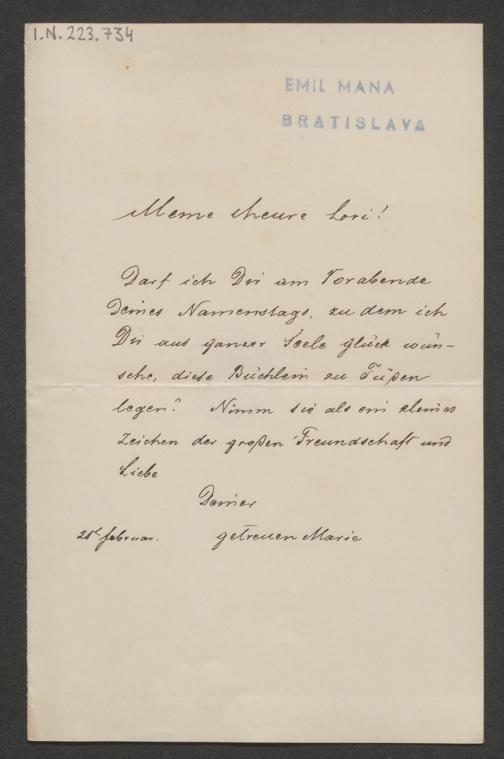 I.N. 223.734
EMIL MANA
BRATISLAVA
Meine theure Lori!
Darf ich Dir am Vorabende
Deines Namenstags, zu dem ich
Dir aus ganzer Seele glück wün-
sche, diese Büchlein zu Füßen
legen? Nimm sie als ein kleines
Zeichen der großen Freundschaft und
Liebe
Deiner
getreuen Marie
20t februar.